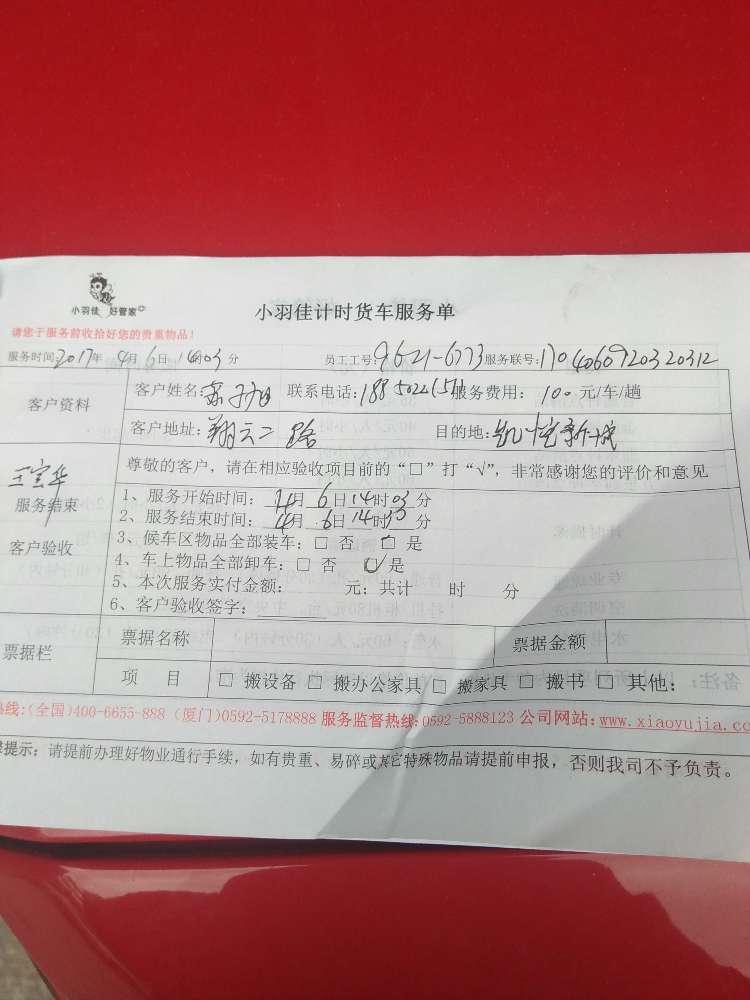 小羽佳 好管家
小羽佳计时货车服务单
请您于服务前收拾好您的贵重物品!
服务时间:2017年 4月 6日 14时03分 员工工号:9621-6773 服务联号:17040609203 20312
客户资料
客户姓名: 联系电话:188 服务费用: 100 元/车/趟
客户地址:翔云二路 目的地:凯悦新城
王宝华
服务结束
客户验收
尊敬的客户,请在相应验收项目前的“□”打“√”,非常感谢您的评价和意见
1、服务开始时间: 4月 6日14时03分
2、服务结束时间: 4月 6日14时 分
3、候车区物品全部装车:□ 否 □ 是
4、车上物品全部卸车:□ 否 ☑是
5、本次服务实付金额: 元;共计 时 分
6、客户验收签字:
票据栏
票据名称 票据金额
项 目 □ 搬设备 □ 搬办公家具 □ 搬家具 □ 搬书 □ 其他:
线:(全国)400-6655-888 (厦门)0592-5178888 服务监督热线:0592-5888123 公司网站:www.xiaoyujia.cc
提示:请提前办理好物业通行手续,如有贵重、易碎或其它特殊物品请提前申报,否则我司不予负责。